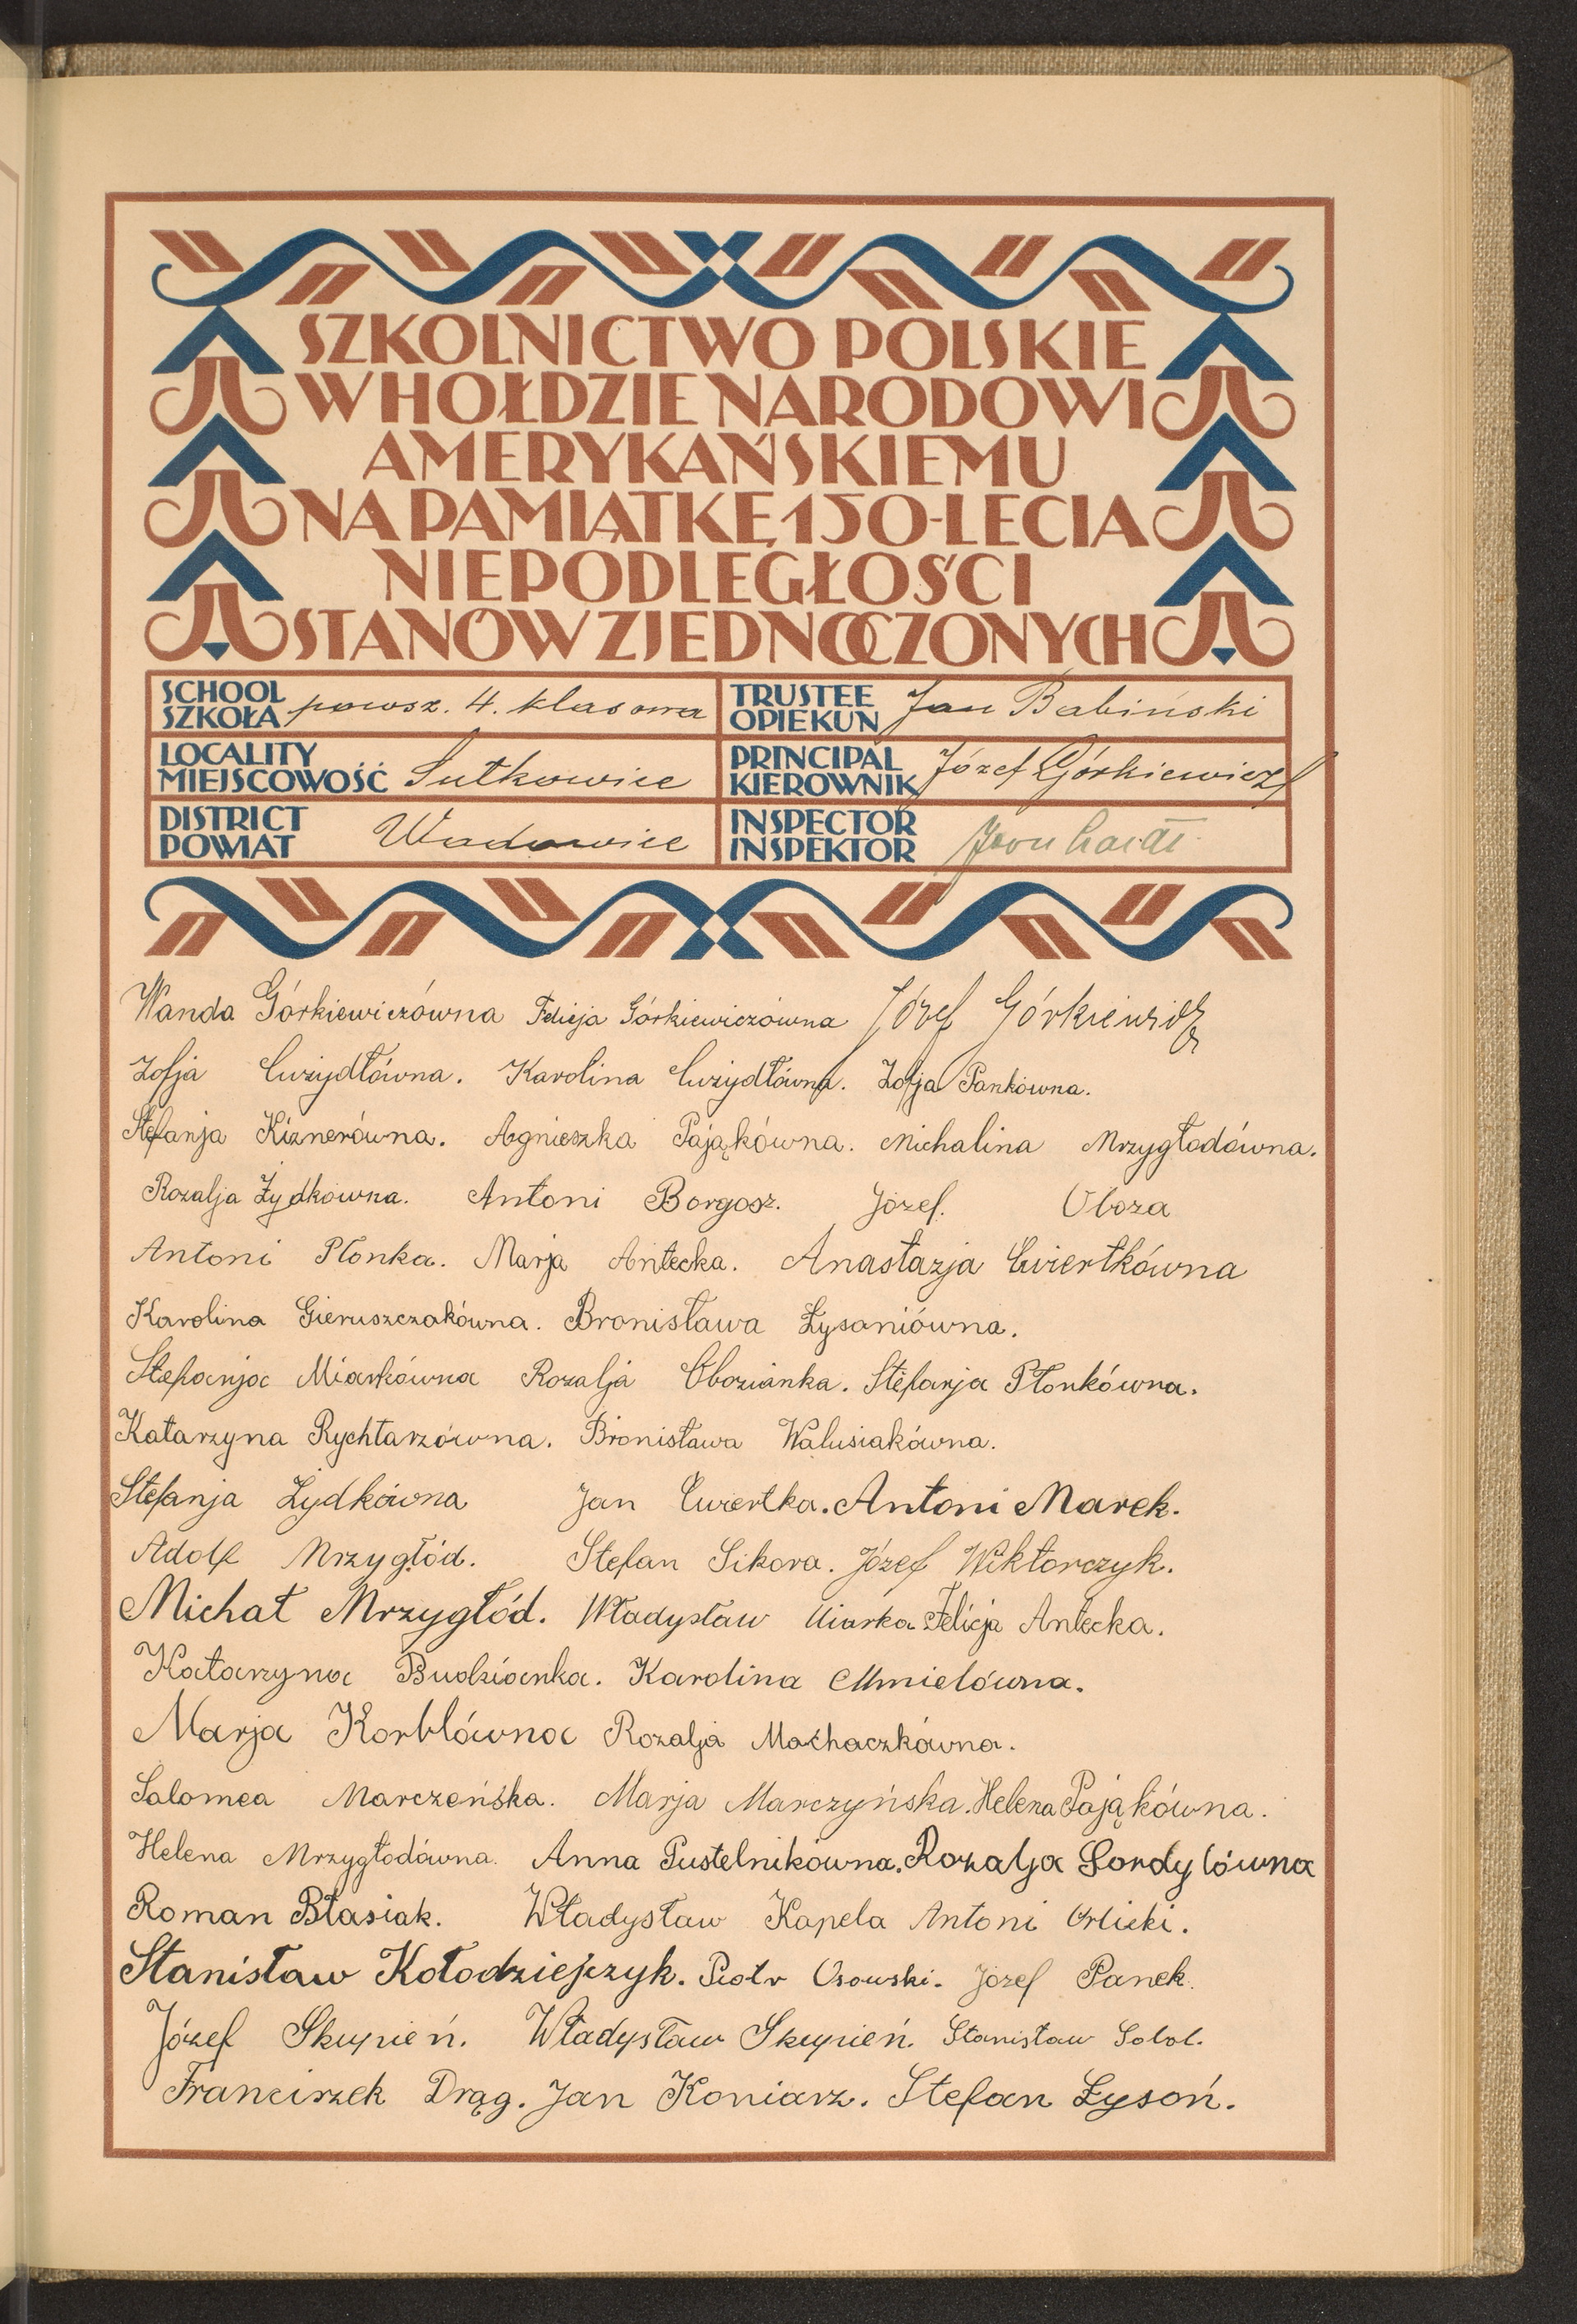 SZKOLNICTWO POLSKIE
W HOŁDZIE NARODOWI
AMERYKAŃSKIEMU
NA PAMIĄTKĘ 150-LECIA
NIEPODLEGŁOŚCI
STANÓW ZJEDNOCZONYCH
SCHOOL
SZKOŁA powsz. 4. klasowa
TRUSTEE
OPIEKUN Jan Babiński
LOCALITY
MIEJSCOWOŚĆ Sułkowice
PRINCIPAL
KIEROWNIK Józef Górkiewicz
DISTRICT
POWIAT Wadowice
INSPECTOR
INSPEKTOR
Wanda Górkiewiczówna Felicja Górkiewiczówna Józef Górkiewicz
Zofja Ćwiydłówna. Karolina Ćwiydłówna. Zofja Pankówna.
Stefanja Kiznerówna. Agnieszka Pająkówna. Michalina Mrzygłodówna.
Rozalja Żydkówna. Antoni Borgosz. Józef. Oboza
Antoni Płonka. Marja Antecka. Anastazja Ćwiertkówna
Karolina Gieruszczakówna. Bronisława Łysoniówna.
Stefanja Miarkówna Rozalja Obozianka. Stefanja Płonkówna.
Katarzyna Rychtarzówna. Bronisława Walusiakówna.
Stefanja Żydkówna Jan Ćwiertka. Antoni Marek.
Adolf Mrzygłód. Stefan Sikora. Józef Wiktorczyk.
Michał Mrzygłód. Władysław Miarka Felicja Antecka.
Katarzyna Budzianka. Karolina Chmielówna.
Marja Korblówna Rozalja Machaczkówna.
Salomea Marczeńska. Marja Marczyńska. Helena Pająkówna.
Helena Mrzygłodówna. Anna Pustelnikówna. Rozalja Sordylówna
Roman Błasiak. Władysław Kapela Antoni Orlicki.
Stanisław Kołodziejczyk. Piotr Osowski. Józef Panek.
Józef Skupień. Władysław Skupień. Stanisław Sobol.
Franciszek Drąg. Jan Koniarz. Stefan Łysoń.